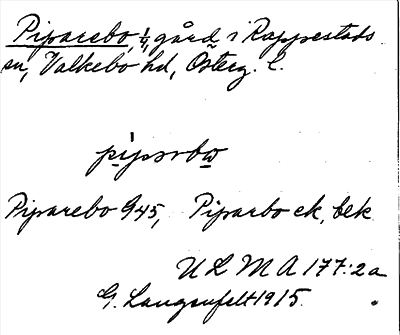 Piparebo, 1/4 gård i Rappestads
sn, Valkebo hd, Österg. l.
pipərbω
Piparebo 945, Piparbo ek, bek
ULMA 177:2a
G. Langenfelt 1915.